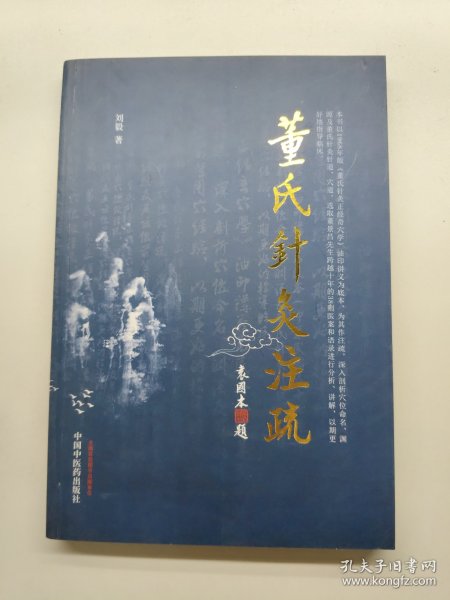 本书以1968年版《董氏针灸正经奇穴学》油印讲义为底本，为其作注疏，深入剖析穴位命名、渊
源及董氏针灸针道、穴道，选取董景昌先生跨越十年的38则医案和语录进行分析、讲解，以期更
好地指导临床。
董氏針灸注疏
袁國本 題
刘毅 著
全国百佳图书出版单位
中国中医药出版社
孔夫子旧书网
www.kongfz.com